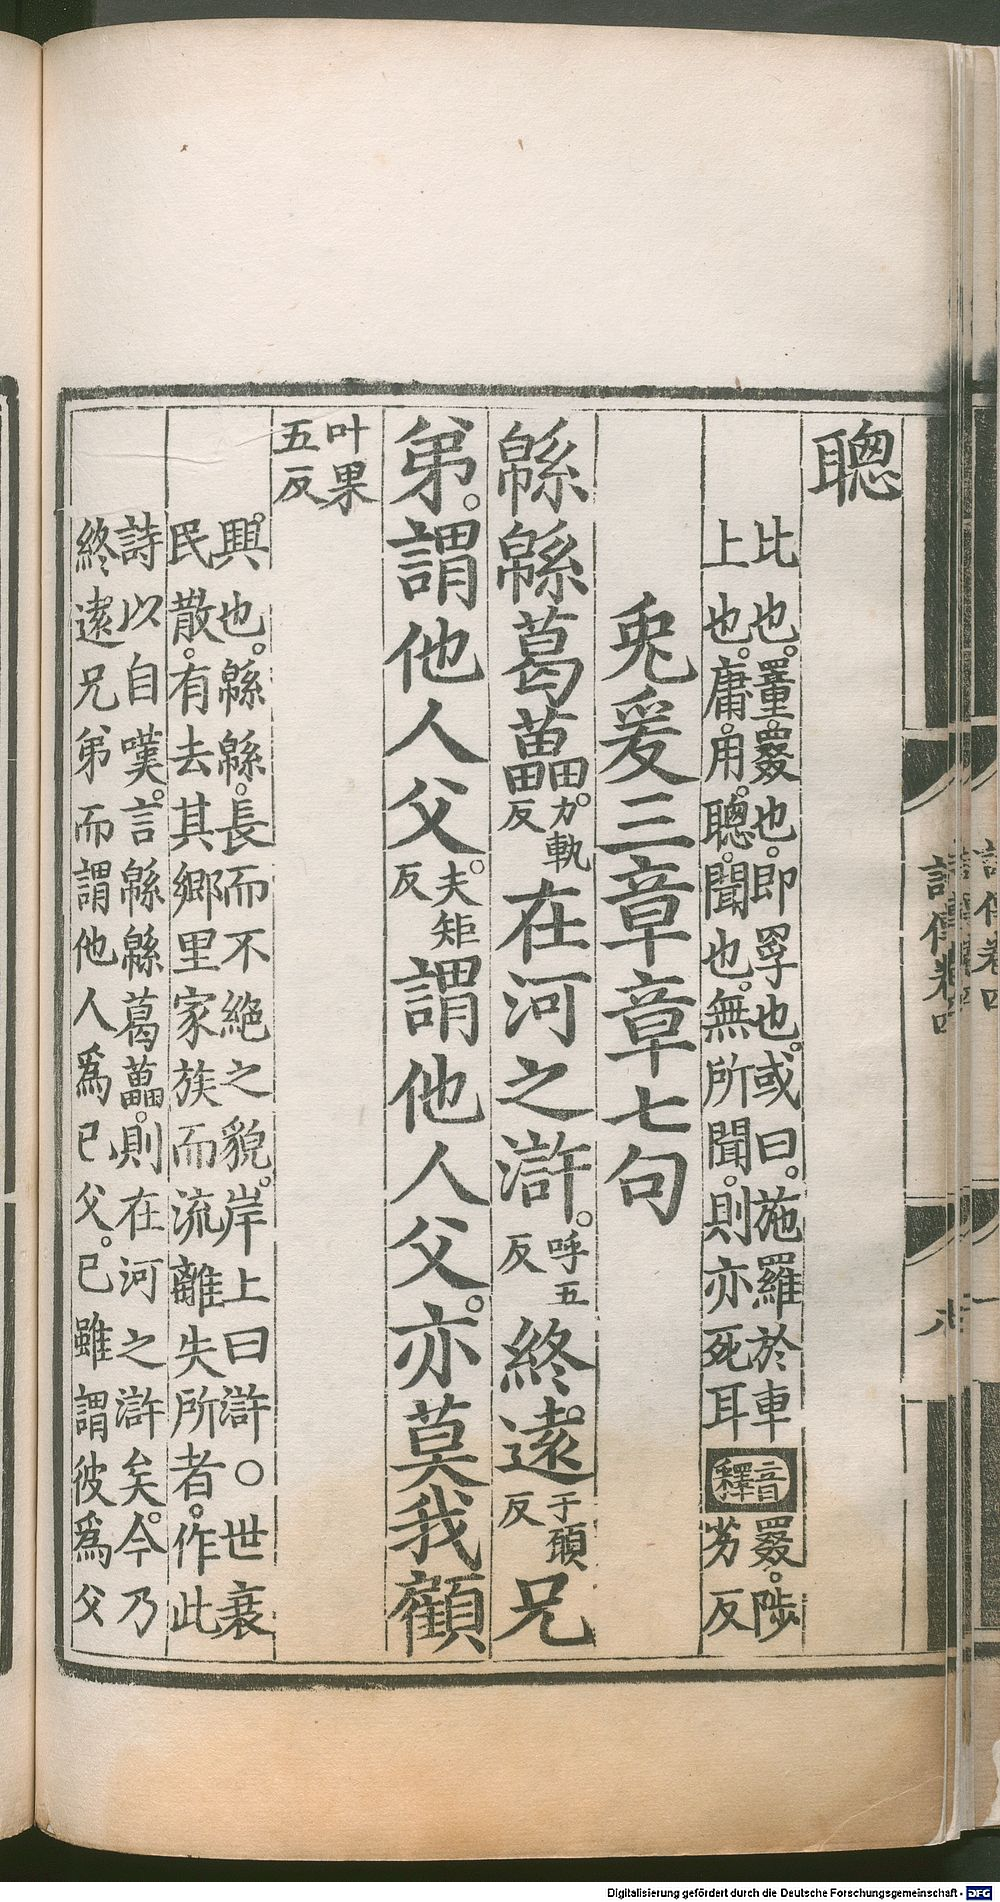 聰
比也。罿、罬也。即罦也。或曰。施羅於車
上也。庸、用。聰、聞也。無所聞。則亦死耳 音釋 罬。陟
劣反
兎爰三章章七句
緜緜葛藟力軌反在河之滸。呼五反終遠于願反兄
弟。謂他人父。夫矩反謂他人父。亦莫我顧
叶果五反
興也。緜緜。長而不絶之貌。岸上曰滸○世衰
民散。有去其鄉里家族而流離失所者。作此
詩以自嘆。言緜緜葛藟。則在河之滸矣。今乃
終遠兄弟而謂他人爲已父。已雖謂彼爲父
詩傳卷四
Digitalisierung gefördert durch die Deutsche Forschungsgemeinschaft - DFG